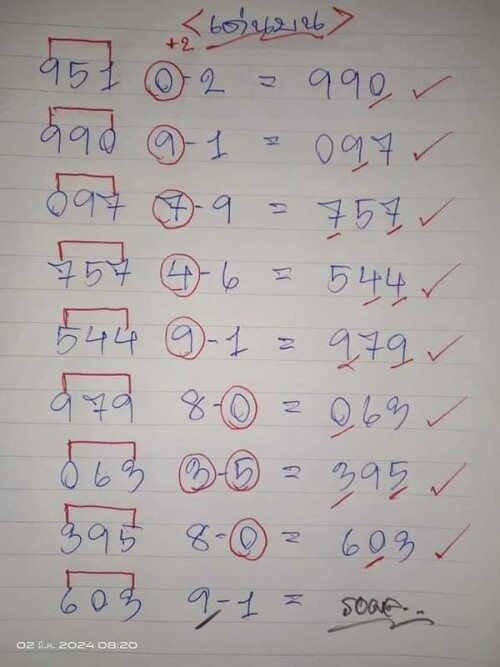 <เด่นบน>
+2
951 0-2 = 990 ✓
990 9-1 = 097 ✓
097 7-9 = 757 ✓
757 4-6 = 544 ✓
544 9-1 = 979 ✓
979 8-0 = 063 ✓
063 3-5 = 395 ✓
395 8-0 = 603 ✓
603 9-1 = รอผล..
02 มี.ค. 2024 08:20